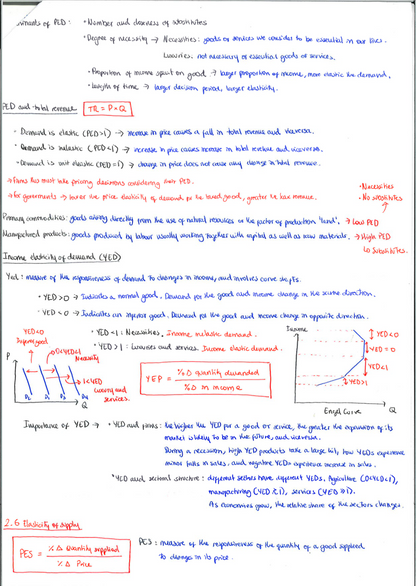 minants of PED: • Number and closeness of substitutes
• Degree of necessity → Necessities: goods or services we consider to be essential in our lives.
Luxuries: not necessary or essential goods or services.
• Proportion of income spent on good → larger proportion of income, more elastic the demand.
• Length of time → larger decision period, larger elasticity.
PED and total revenue TR = P × Q
• Demand is elastic (PED>1) → increase in price causes a fall in total revenue and viceversa.
• Demand is inelastic (PED<1) → increase in price causes increase in total revenue and viceversa.
• Demand is unit elastic (PED=1) → change in price does not cause any change in total revenue.
→ Firms thus must take pricing decisions considering their PED.
→ For governments → lower the price elasticity of demand for the taxed good, greater the tax revenue.
• Necessities
• No substitutes
Primary commodities: goods arising directly from the use of natural resources or the factor of production "land". → Low PED
Manufactured products: goods produced by labour usually working together with capital as well as raw materials. → High PED
↳ Substitutes.
Income elasticity of demand (YED)
Yed: measure of the responsiveness of demand to changes in income, and involves curve shifts.
• YED > 0 → Indicates a normal good. Demand for the good and income change in the same direction.
• YED < 0 → Indicates an inferior good. Demand for the good and income change in opposite direction.
• YED < 1: Necessities, Income inelastic demand.
• YED > 1: Luxuries and services. Income elastic demand.
YED<0
Inferior good
0<YED<1
Necessity
1<YED
Luxury and services.
P
D₂ D₁ D₃ D₄
Q
YEP = % Δ quantity demanded
% Δ in income
Income
YED<0
YED = 0
YED<1
YED>1
Engel Curve Q
Importance of YED → • YED and firms: the higher the YED for a good or service, the greater the expansion of its
market is likely to be in the future, and viceversa.
During a recession, high YED products take a large hit, low YEDs experience
minor falls in sales, and negative YEDs experience increase in sales.
• YED and sectoral structure: different sectors have different YEDs. Agriculture (0<YED<1),
manufacturing (YED≥1), services (YED≥1).
As economies grow, the relative share of the sectors changes.
2.6 Elasticity of supply
PES = % Δ Quantity supplied
% Δ Price
PES: measure of the responsiveness of the quantity of a good supplied
to changes in its price.